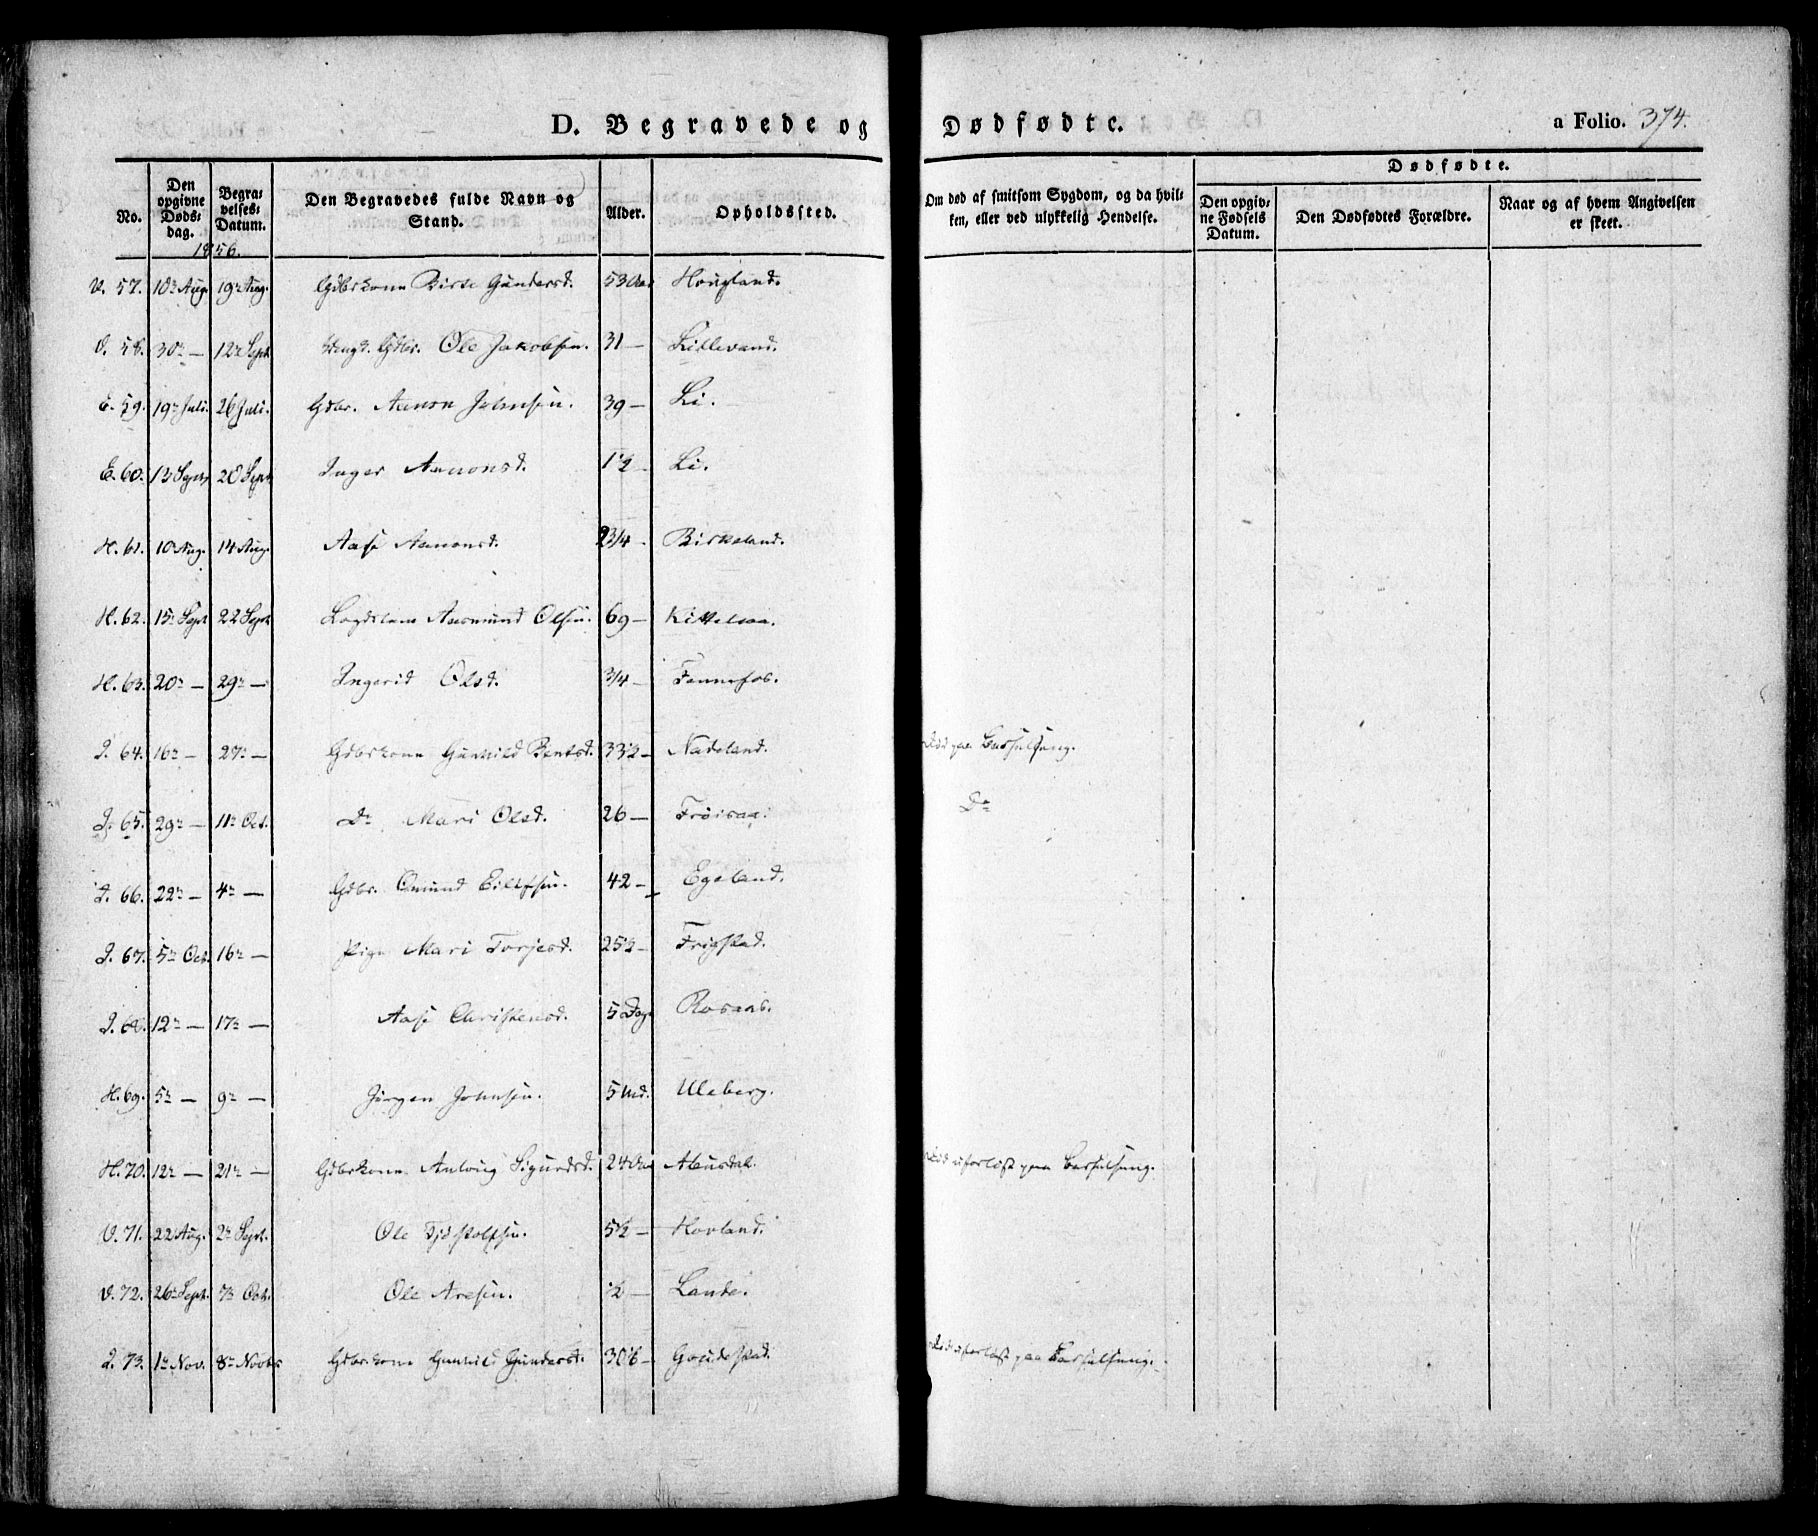 D. Begravede og Dødfødte. a Folio. 374.
No. Den opgivne Døds-dag. Begra-velses-Datum. Den Begravedes fulde Navn og Stand. Alder. Opholdssted. Om død af smitsom Sygdom, og da hvil-ken, eller ved ulykkelig Hendelse. Dødfødte. Den opgiv-ne Fødsels Datum. Den Dødfødtes Forældre. Naar og af hvem Angivelsen er skeet.
1856.
V. 57. 10de Aug. 19de Aug. Gdbrkone Birte Gundersd. 53 Aar Hougland.
V. 58. 30te — 12te Sept. Gdbr. Ole Jakobsen. 31 — Lillevand.
E. 59. 19de Juli. 26 Juli. Gdbr. Aanon Johnsen. 39 — Li.
E. 60. 13 Sept. 28 Sept. Inger Aanonsd. 1½ — Li.
H. 61. 10 Aug. 14 Aug. Aase Aanonsd. 2 3/4 — Birkeland.
H. 62. 15de Sept 22 Sept Aasmund Olsen. 69 — Kittelsaa.
H. 63. 20de — 29de — Ingerid Olsd. 3/4 — Fennefos.
I. 64. 16de — 27de — Gdbrkone Gunhild Bentsd. 33½ — Nadeland. Død paa Barselseng.
I. 65. 29de — 11te Oct. Do Mari Olsd. 26 — Frøisaa. Do
I. 66. 22de — 4de — Gdbr. Omund Eilefsen. 42 — Egeland.
I. 67. 5te Oct. 16de — Pige Mari Torjesd. 25½ — Frigstad.
I. 68. 12te — 17de — Aase Christensd. 5 Dage Rosaas.
H. 69. 5te — 9de — Jørgen Johnsen. 5 Md. Uleberg.
H. 70. 12te — 21de — Gdbrkone Anlaug Sigurdsd. 24 Aar Abusdal. Død uforløst paa Barselseng.
V. 71. 22 Aug. 2de Sept. Ole Tjøstolfsen. 5½ — Hovland.
V. 72. 26de Sept. 7de Oct. Ole Aresen. ½ — Lande.
I. 73. 1te Nov. 8de Novbr Gdbrkone Gunhild Gundersd. 30⅙ — Goudestad. Død uforløst paa Barselseng.